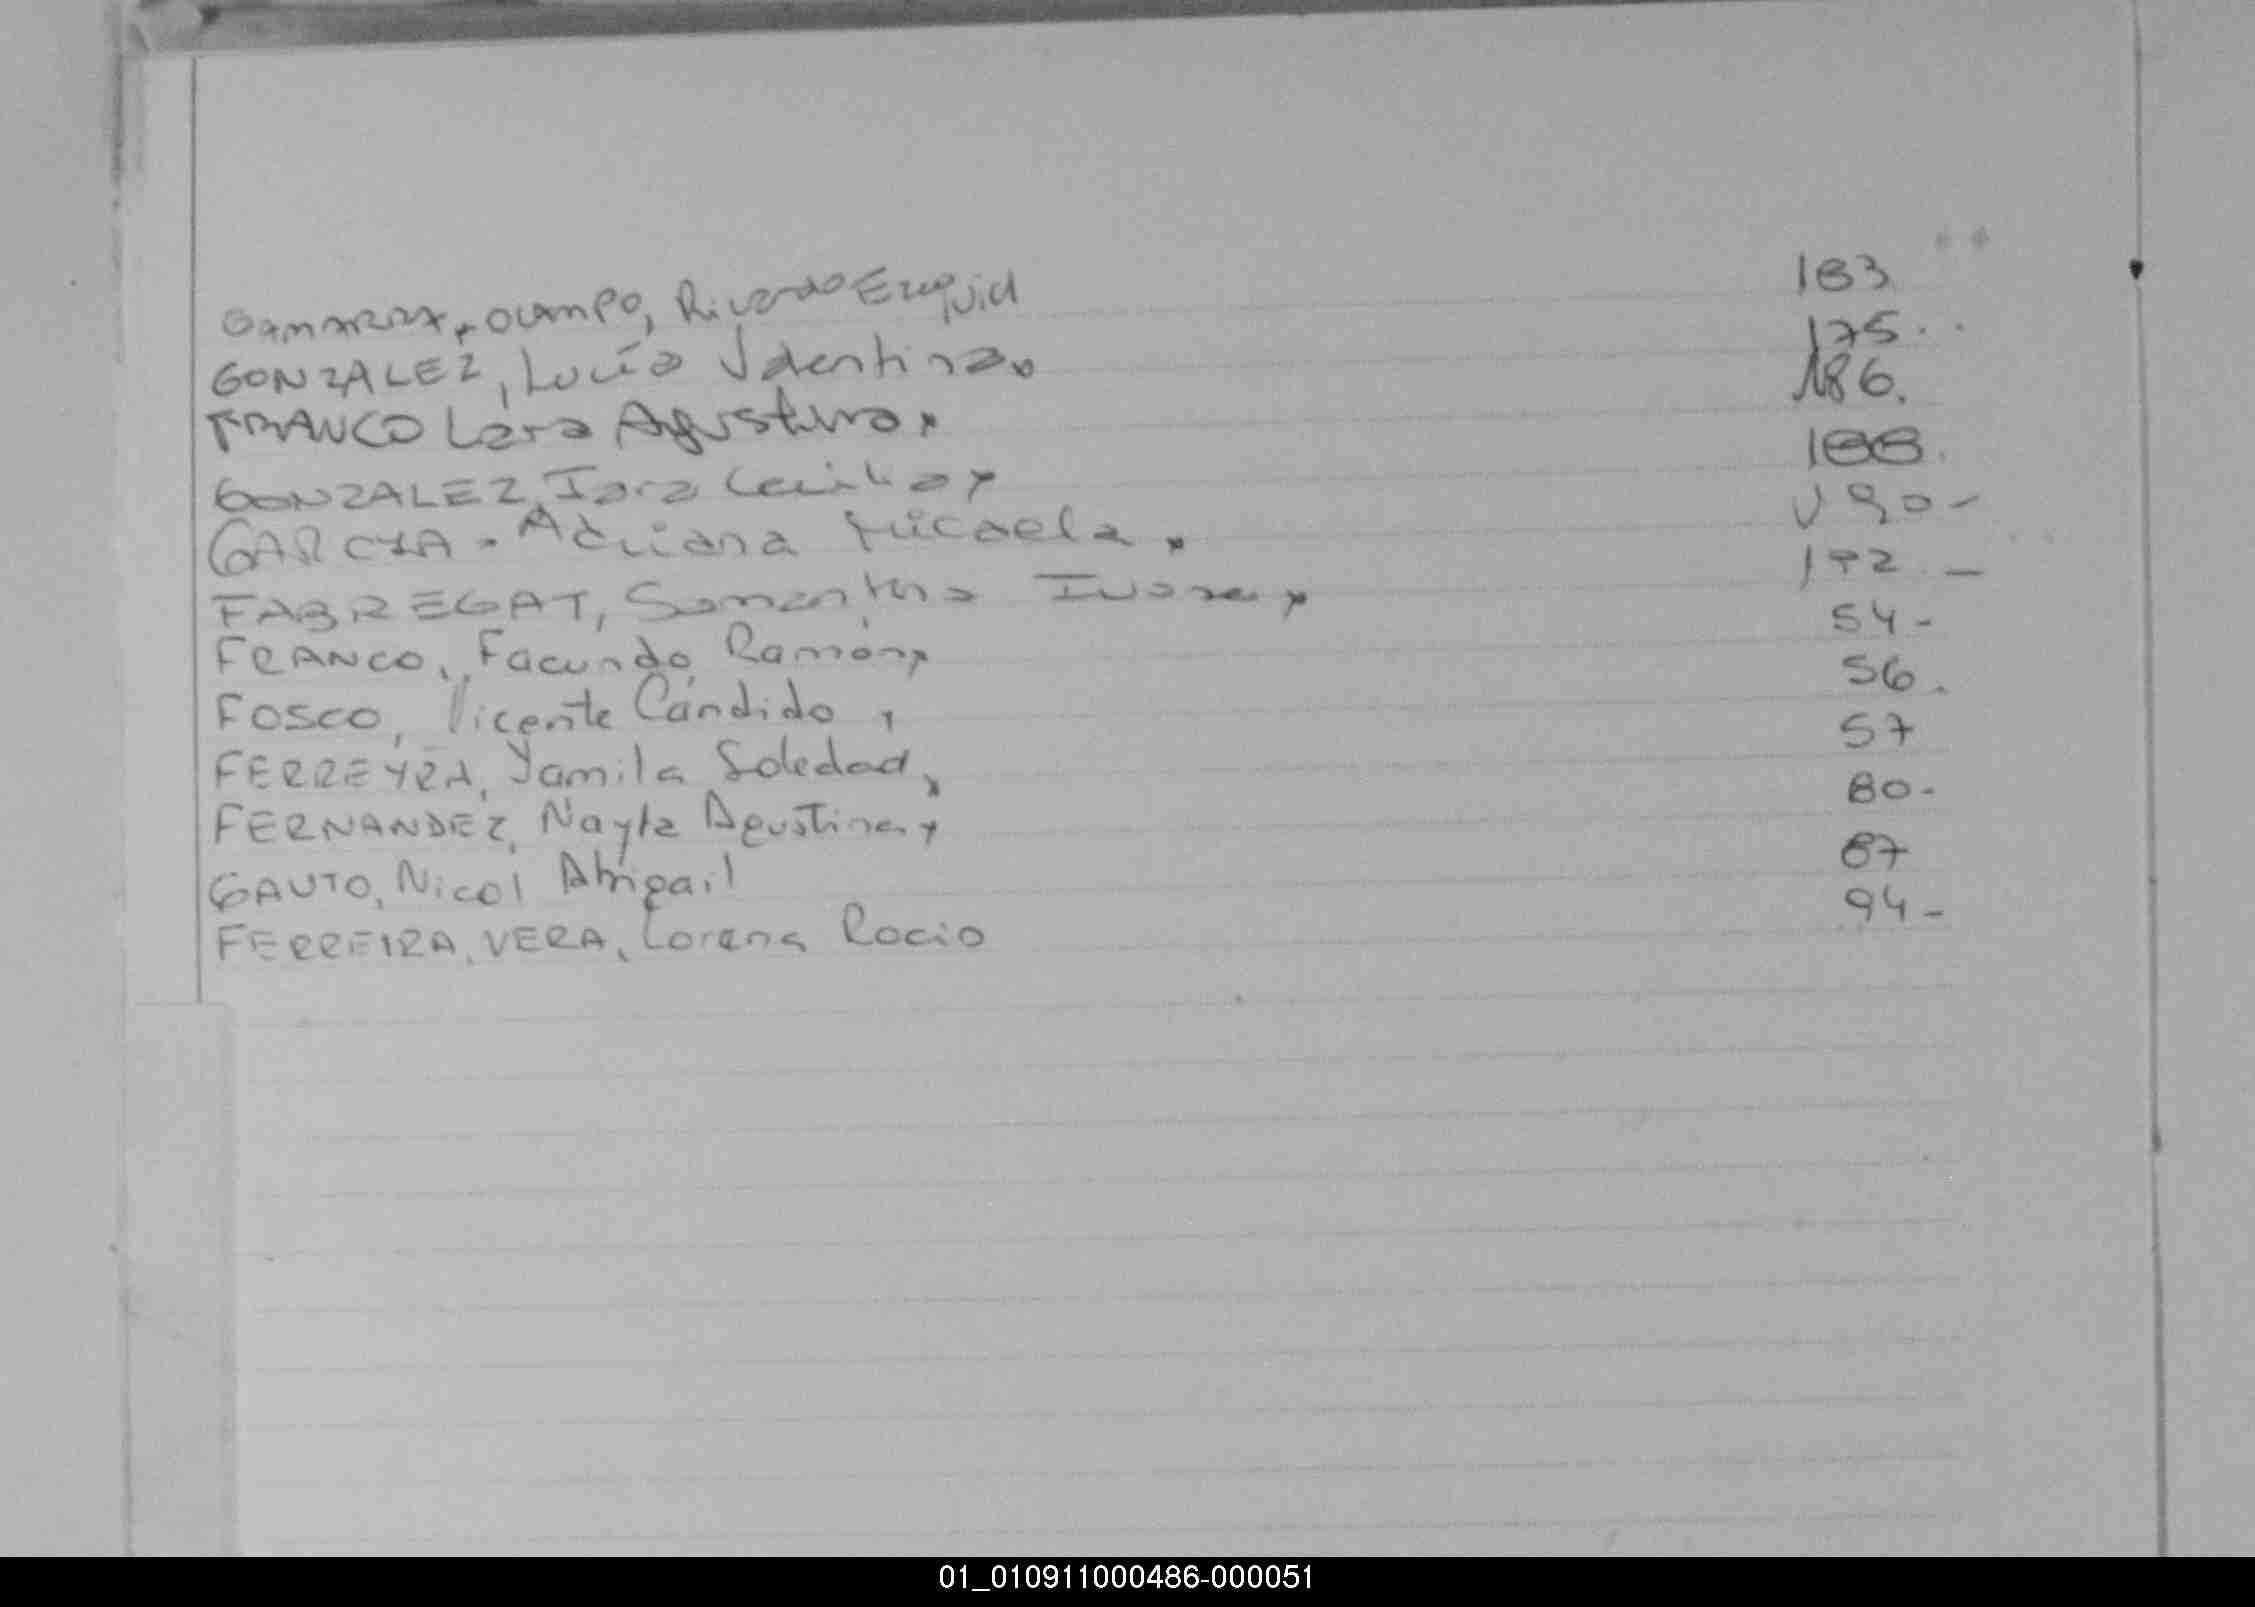 GAMARRA, OCAMPO, Ricardo Ezequiel 183
GONZALEZ, Lucía Valentina 175
FRANCO Lara Agustina 186.
GONZALEZ, Iara Cecilia 188.
GARCIA - Adriana Micaela. 190-
FABREGAT, Samantha 192.-
FRANCO, Facundo Ramón 54-
FOSCO, Vicente Cándido, 56.
FERREYRA, Yamila Soledad, 57
FERNANDEZ, Nayla Agustina 80-
GAUTO, Nicol Abigail 87
FERREIRA, VERA, Lorena Rocio 94-
01_010911000486-000051